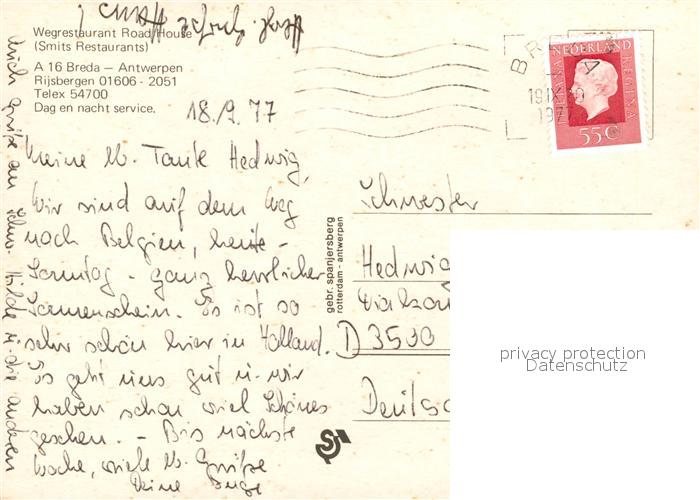 Herzl. Grüße Hans!
Wegrestaurant Road House
(Smits Restaurants)
A 16 Breda — Antwerpen
Rijsbergen 01606 - 2051
Telex 54700
Dag en nacht service.
18.9.77
Meine lb. Tante Hedwig,
Wir sind auf dem Weg
nach Belgien, heute -
Sonntag - ganz herrlicher
Sonnenschein. Es ist so
sehr schön hier in Holland.
Es geht uns gut u. wir
haben schon viel Schönes
gesehen. - Bis nächste
Woche, viele lb. Grüße
Deine Inge
auch Grüße an Schw. Hilde u. die anderen
gebr. spanjersberg
rotterdam - antwerpen
BR DA
19 IX
197
NEDERLAND
JULIANA REGINA
55c
Schwester
Hedwig
Diakon
D 3500
Deutsc
privacy protection
Datenschutz